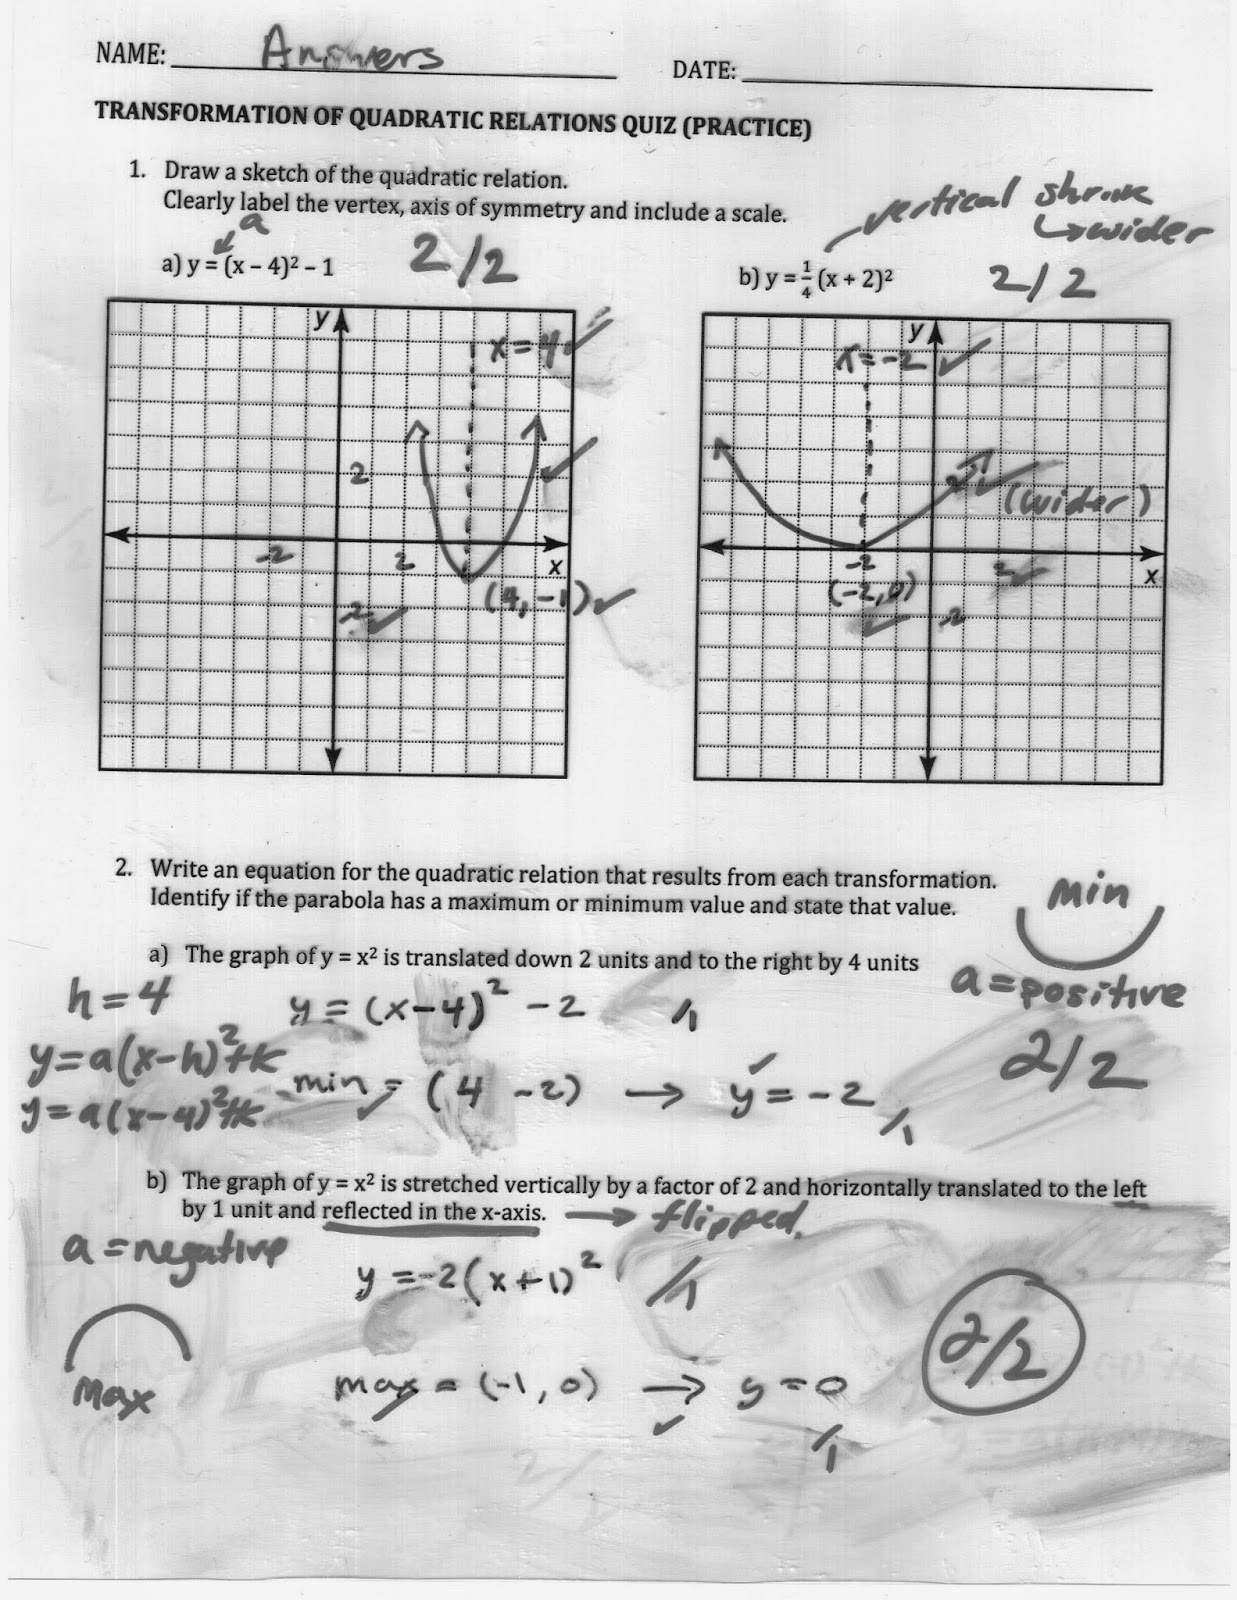 NAME: Answers
DATE:
TRANSFORMATION OF QUADRATIC RELATIONS QUIZ (PRACTICE)
1. Draw a sketch of the quadratic relation.
Clearly label the vertex, axis of symmetry and include a scale.
a
a) y = (x – 4)² – 1
2/2
vertical shrink
↳ wider
b) y = 1/4 (x + 2)²
2/2
y
x = 4 ✓
2
-2
2
x
(4, -1) ✓
-2 ✓
y
x = -2 ✓
(wider)
-2
x
(-2, 0)
2. Write an equation for the quadratic relation that results from each transformation.
Identify if the parabola has a maximum or minimum value and state that value.
min
a) The graph of y = x² is translated down 2 units and to the right by 4 units
a = positive
h = 4
y = (x-4)² - 2
/1
2/2
y = a(x-h)² + k
min = (4 -2) → y = -2
/1
y = a(x-4)² + k
b) The graph of y = x² is stretched vertically by a factor of 2 and horizontally translated to the left
by 1 unit and reflected in the x-axis. → flipped.
a = negative
y = -2(x+1)²
/1
2/2
max
max = (-1, 0) → y = 0
/1